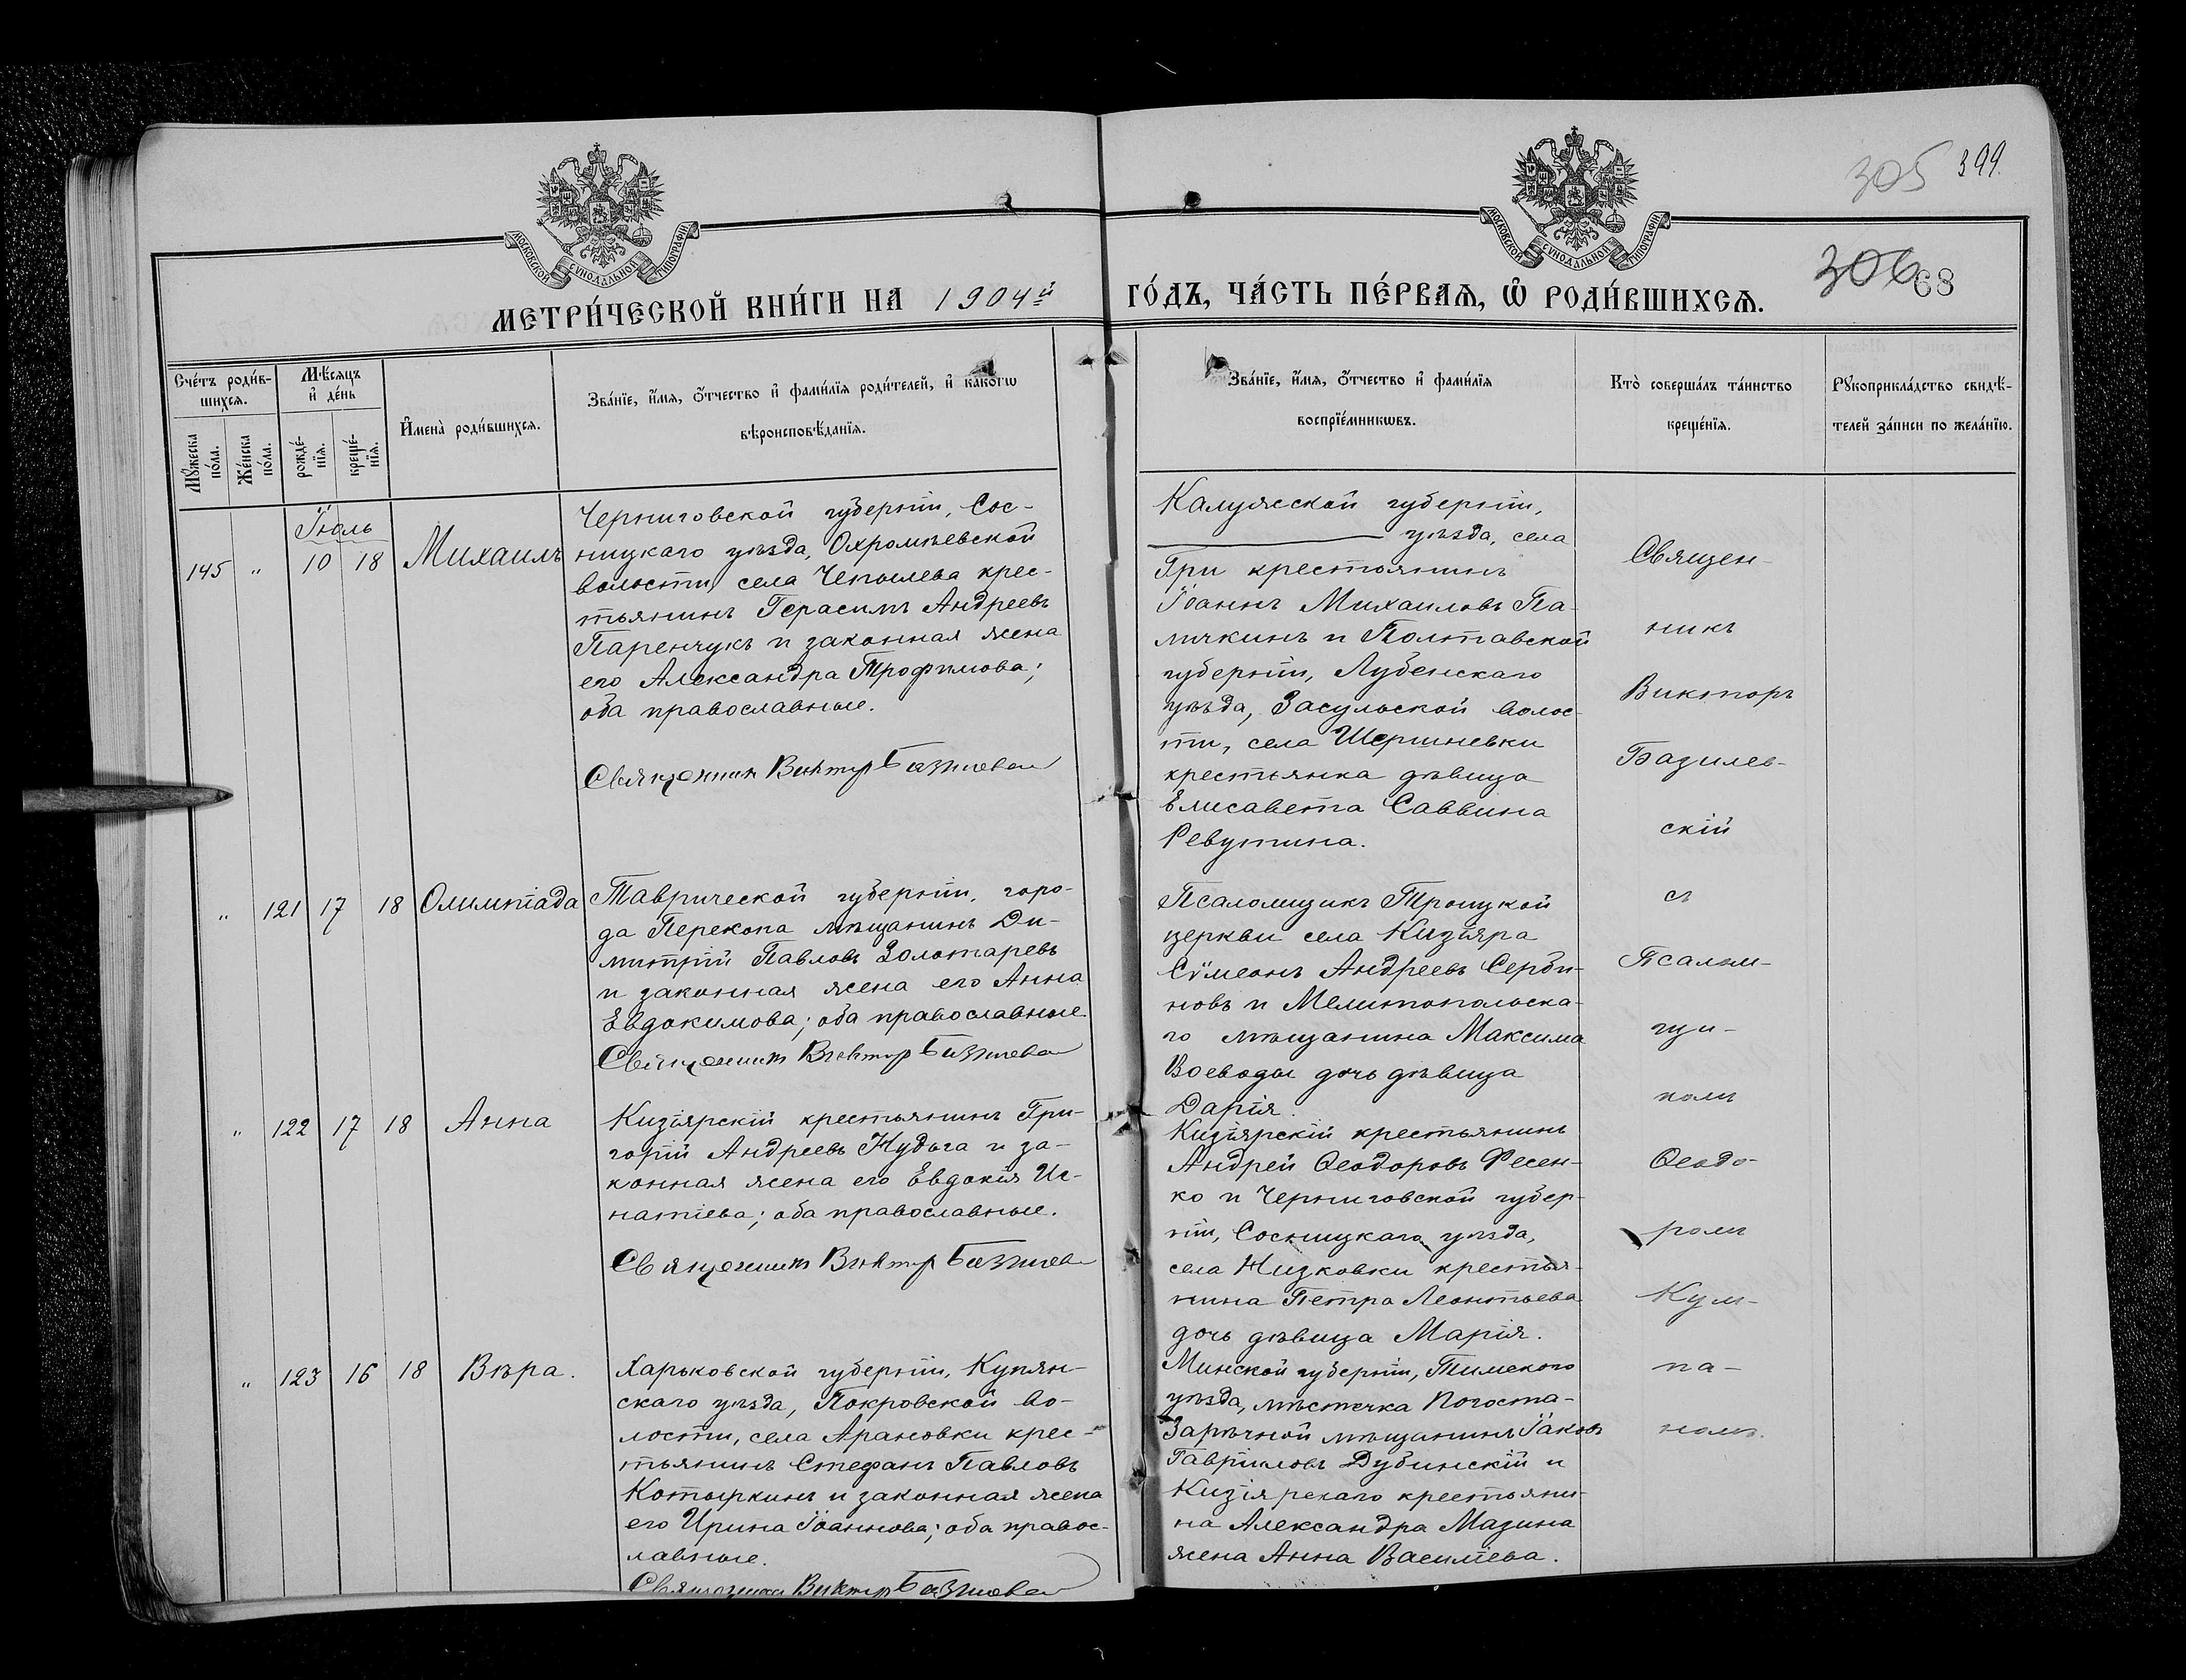 305 399.
306 68
МОСКОВСКОЙ СѴНОДАЛЬНОЙ ТИПОГРАФІИ
МОСКОВСКОЙ СѴНОДАЛЬНОЙ ТИПОГРАФІИ
МЕТРИ́ЧЕСКОЙ КНИ́ГИ НА 1904й ГО́ДЪ, ЧА́СТЬ ПЕ́РВАѦ, Ѽ РОДИ́ВШИХСѦ.
Сче́тъ роди́в-
шихсѧ.
Мѣ́сѧцъ
и҆ де́нь
Мꙋ́жеска
по́ла.
Же́нска
по́ла.
рожде́-
нїѧ.
креще́-
нїѧ.
И҆мена̀ роди́вшихсѧ.
Зва́нїе, и҆́мѧ, ѻ҆́тчество и҆ фами́лїѧ роди́телей, и҆ како́гѡ
вѣроисповѣ́данїѧ.
Зва́нїе, и҆́мѧ, ѻ҆́тчество и҆ фами́лїѧ
воспрїе́мникѡвъ.
Кто̀ соверша́лъ та́инство
креще́нїѧ.
Рꙋкоприкла́дство свидѣ́-
телей за́писи по жела́нїю.
Іюль
145 „ 10 18 Михаилъ
Черниговской губерніи, Сос-
ницкаго уѣзда, Охромѣевской
волости, села Чепылева крес-
тьянинъ Герасимъ Андреевъ
Паренчукъ и законная жена
его Александра Трофимова;
оба православные.
Священникъ Викторъ Базилев
Калужской губерніи,
уѣзда, села
Гри крестьянинъ
Іоаннъ Михаиловъ Па-
личкинъ и Полтавской
губерніи, Лубенскаго
уѣзда, Засульской волос-
ти, села Шершневки
крестьянка дѣвица
Елисавета Саввина
Ревутина.
„ 121 17 18 Олимпіада
Таврической губерніи, горо-
да Перекопа мѣщанинъ Ди-
митрій Павловъ Золотаревъ
и законная жена его Анна
Евдокимова; оба православные
Священникъ Викторъ Базилев
Псаломщикъ Троицкой
церкви села Кизіяра
Сѵмеонъ Андреевъ Серби-
новъ и Мелитопольска-
го мѣщанина Максима
Воеводы дочь дѣвица
Дарія.
„ 122 17 18 Анна
Кизіярскій крестьянинъ Гри-
горій Андреевъ Нудьга и за-
конная жена его Евдокія Иг-
натіева; оба православные.
Священникъ Викторъ Базилев
Кизіярскій крестьянинъ
Андрей Ѳеодоровъ Фесен-
ко и Черниговской губер-
ніи, Сосницкаго уѣзда,
села Низковки крестья-
нина Петра Леонтьева
дочь дѣвица Марія.
„ 123 16 18 Вѣра.
Харьковской губерніи, Купян-
скаго уѣзда, Покровской во-
лости, села Арановки крес-
тьянинъ Стефанъ Павловъ
Котыркинъ и законная жена
его Ирина Іоаннова; оба правос-
лавные.
Священникъ Викторъ Базилев
Минской губерніи,
уѣзда, мѣстечка Погоста-
Зарѣчной мѣщанинъ Іаковъ
Гавріиловъ Дубинскій и
Кизіярскаго крестьяни-
на Александра Мазина
жена Анна Василіева.
Священ-
никъ
Викторъ
Базилев-
скій
съ
Псалом-
щи-
комъ
Ѳеодо-
ромъ
Кум-
па-
номъ.